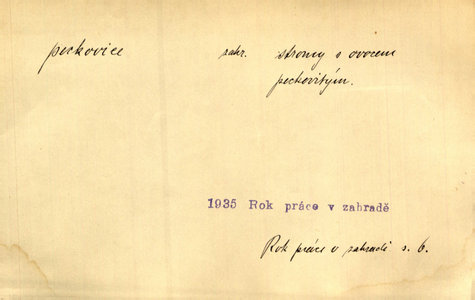 peckovice zahr. stromy s ovocem
peckovitým.
1935 Rok práce v zahradě
Rok práce v zahradě s. 6.